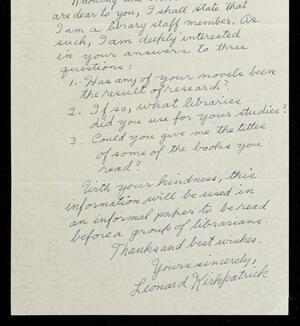 are dear to you, I shall state that
I am a library staff member. As
such, I am deeply interested
in your answers to three
questions:
1. Has any of your novels been
the result of research?
2. If so, what libraries
did you use for your studies?
3. Could you give me the titles
of some of the books you
read?
With your kindness, this
information will be used in
an informal paper to be read
before a group of librarians.
Thanks and best wishes.
Yours sincerely,
Leonard Kirkpatrick